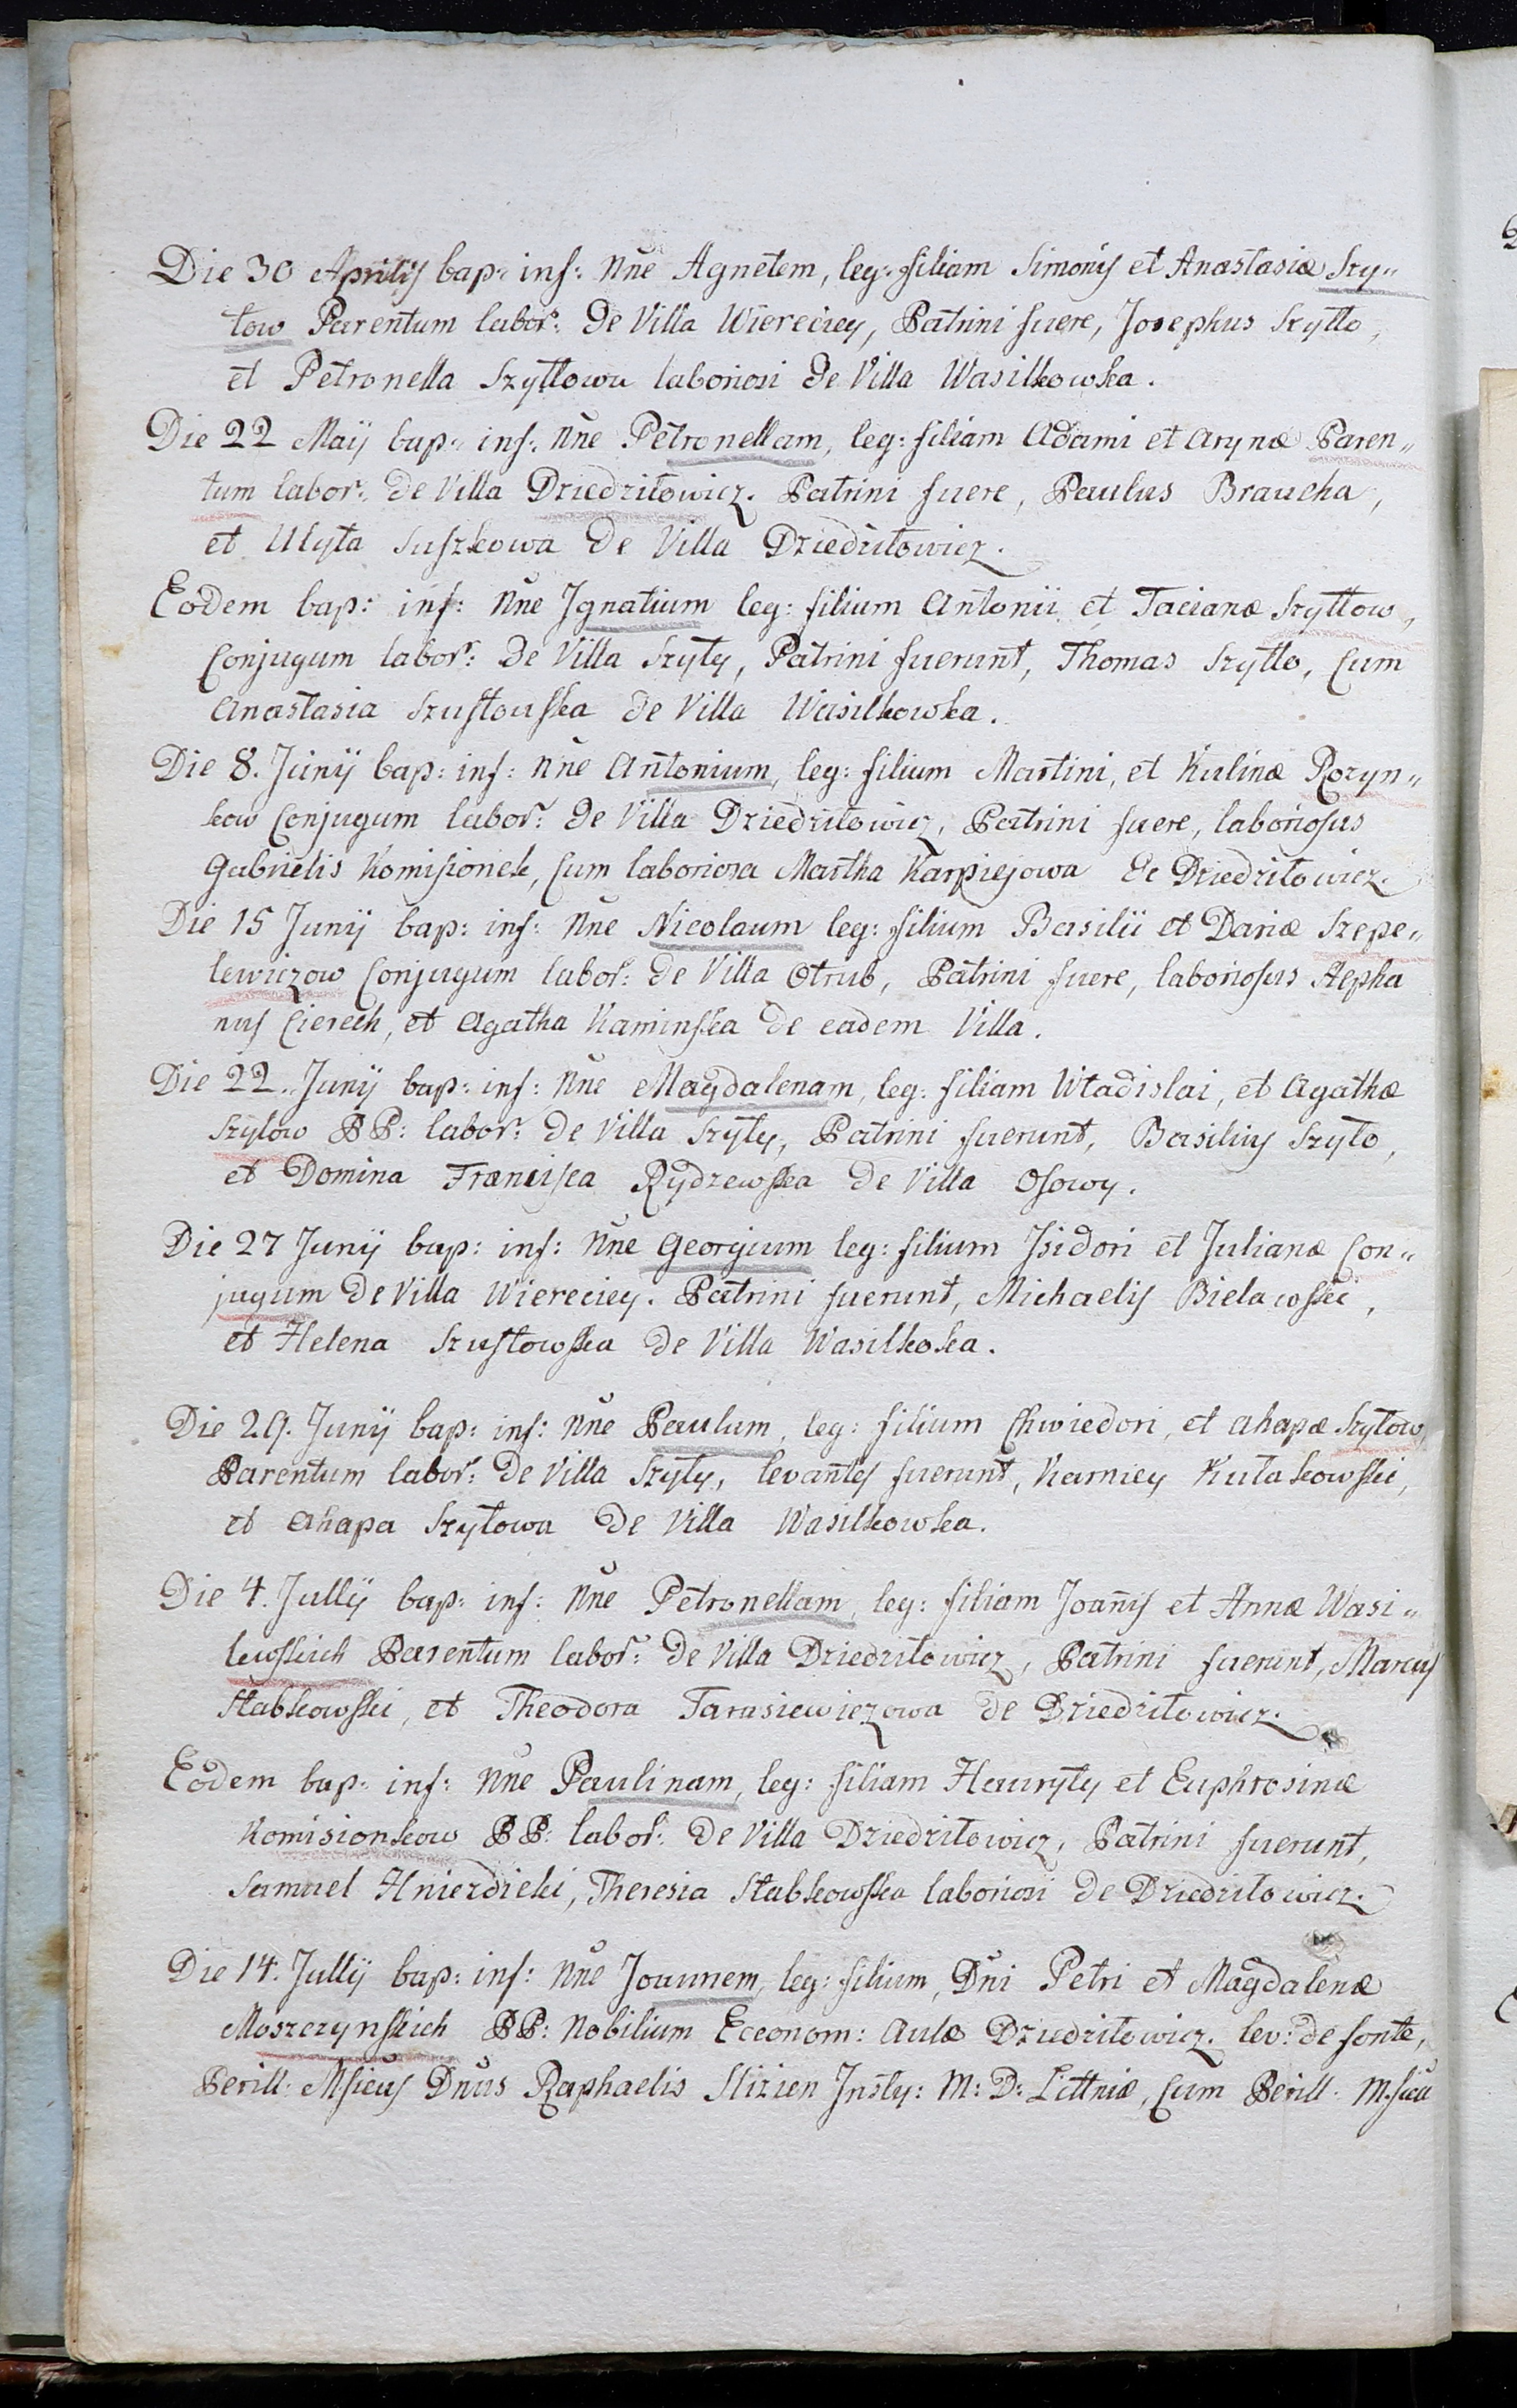 Die 30 Aprilis bap: inf: Nne Agnetem, leg: filiam Simonis et Anastasiæ Szy„
łow Parentum labor: de Villa Wiereciey, Patrini fuere, Josephus Szytło,
et Petronella Szytłowa laboriosi de Villa Wasilkowka.
Die 22 Maij bap: inf: Nne Petronellam, leg: filiam Adami et Arynæ Paren„
tum labor: de Villa Dziedziłowicz. Patrini fuere, Paulus Braucha,
et Ulyta Suszkowa de Villa Dziedziłowicz.
Eodem bap: inf: Nne Ignatium leg: filium Antonii et Tacianæ Szyttow,
Conjugum labor: de Villa Szyty, Patrini fuerunt, Thomas Szytto, Cum
Anastasia Szustouska de Villa Wasilkowka.
Die 8. Junij bap: inf: Nne Antonium, leg: filium Martini, et Kulinæ Rozyn„
kow Conjugum labor: de Villa Dziedziłowicz, Patrini fuere, laboriosus
Gabrielis Komisionek, Cum laboriosa Martha Karpiejowa de Dziedziłowicz.
Die 15 Junij bap: inf: Nne Nicolaum leg: filium Basilii et Dariæ Szepe„
lewiczow Conjugum labor: de Villa Otrub, Patrini fuere, laboriosus Stepha
nus Cierech, et Agatha Kaminska de eadem Villa.
Die 22. Junij bap: inf: Nne Magdalenam, leg: filiam Władislai, et Agathæ
Szyłow PP: labor: de Villa Szyły, Patrini fuerunt, Basilius Szyło,
et Domina Francisca Rydzewska de Villa Osowy.
Die 27 Junij bap: inf: Nne Georgium leg: filium Isidori et Julianæ Con„
jugum de Villa Wiereciey. Patrini fuerunt, Michaelis Bielawski,
et Helena Szustowska de Villa Wasilkoka.
Die 29. Junij bap: inf: Nne Paulum, leg: filium Chwiedori, et Ahapæ Szyłow,
Parentum labor: de Villa Szyły, levantes fuerunt, Karniey Kułakowski,
et Ahapa Szyłowa de Villa Wasilkowka.
Die 4. Jullij bap: inf: Nne Petronellam, leg: filiam Joannis et Annæ Wasi„
lewskich Parentum labor: de Villa Dziedziłowicz, Patrini fuerunt, Marcus
Słabkowski, et Theodora Tarasiewiczowa de Dziedziłowicz.
Eodem bap: inf: Nne Paulinam, leg: filiam Hauryły et Euphrosinæ
Komisionkow PP: labor: de Villa Dziedziłowicz, Patrini fuerunt,
Samuel Hniezdicki, Theresia Słabkowska laboriosi de Dziedziłowicz.
Die 14. Jullij bap: inf: Nne Joannem, leg: filium, Dni Petri et Magdalenæ
Moszczynskich PP: Nobilium Eceonom: Aulæ Dziedziłowicz. lev: de fonte,
Perill: Msicus Dnus Raphaelis Slizien Insty: M: D: Littniæ, Cum Perill: Msica